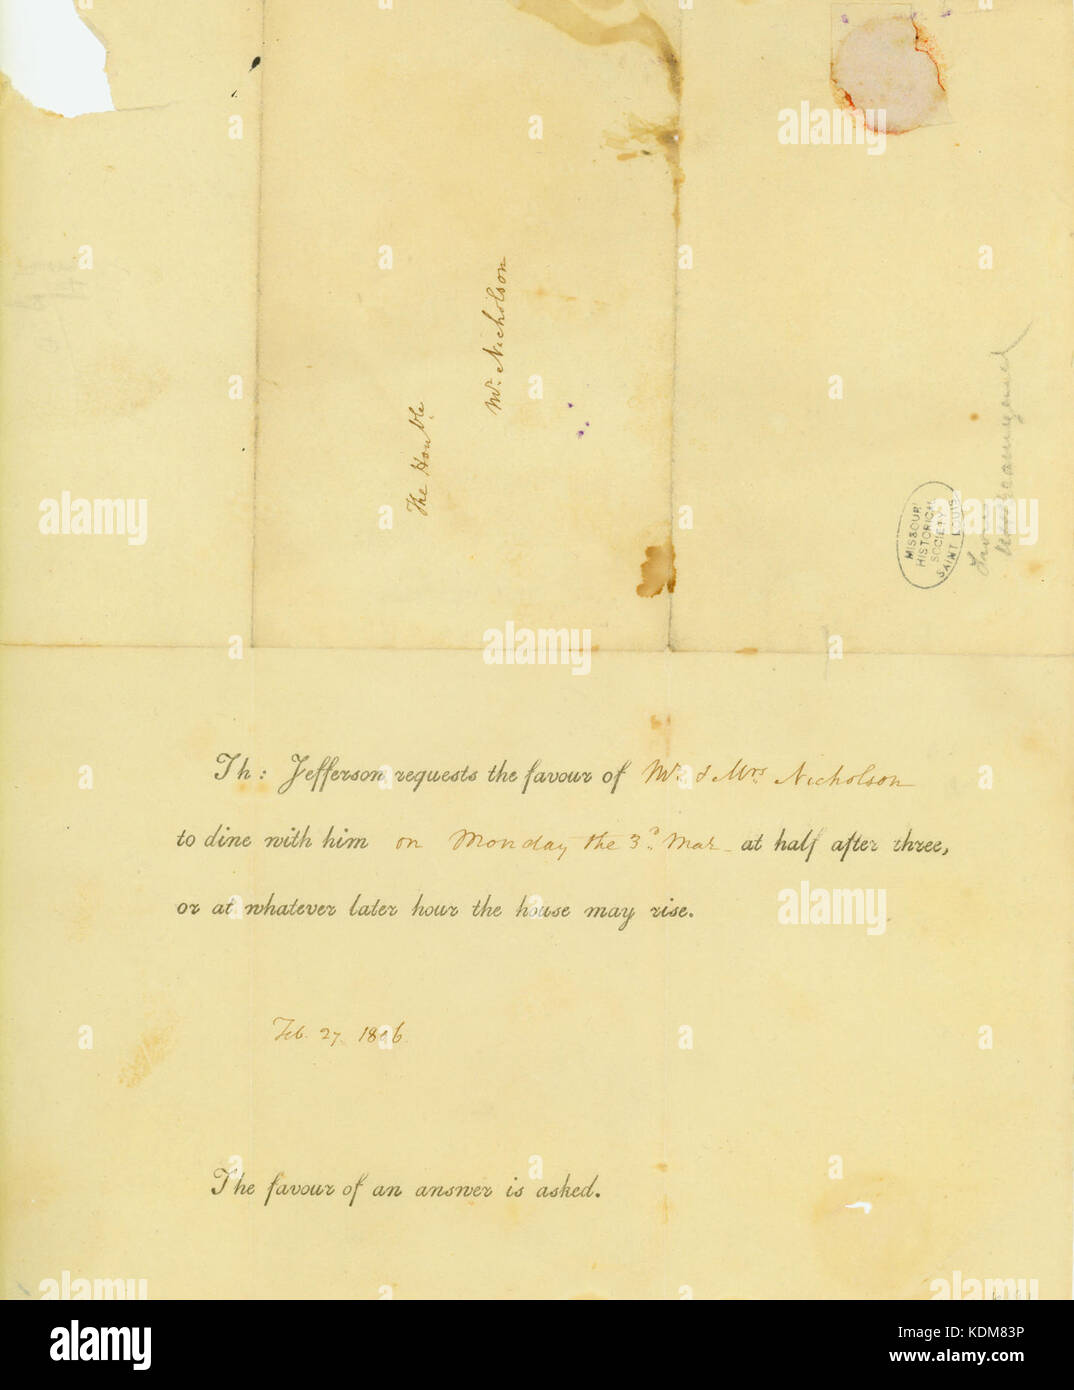 The Honble.
Mr. Nicholson
MISSOURI
HISTORICAL
SOCIETY
SAINT LOUIS
from
Th: Jefferson requests the favour of Mr. & Mrs. Nicholson
to dine with him on Monday the 3d. Mar. at half after three,
or at whatever later hour the house may rise.
Feb. 27. 1806.
The favour of an answer is asked.
alamy
Image ID: KDM83P
www.alamy.com